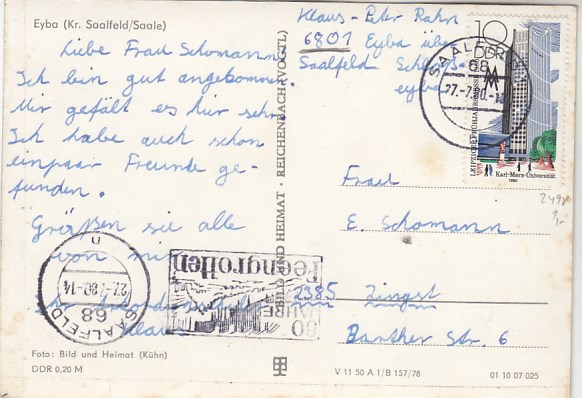 Eyba (Kr. Saalfeld/Saale)
Liebe Frau Schomann
Ich bin gut angekommen
Mir gefält es hir sehr
Ich habe auch schon
einpaar Freunde ge-
funden.
Größen sie alle
von mir
Klaus
Foto: Bild und Heimat (Kühn)
DDR 0,20 M
BILD UND HEIMAT · REICHENBACH (VOGTL)
Klaus-Peter Rahn
6801 Eyba über
Saalfeld
eyba
10
DDR
MM
LEIPZIGER FRÜHJAHRSMESSE
Karl-Marx-Universität
1980
SAALFELD
68
27.-7.80.-14
SAALFELD
68
27.-7.80.-14
n
80
JAHRE
Feengrotten
Frau
E. Schomann
2385 Zingst
Barther Str. 6
V 11 50 A 1/B 157/78
01 10 07 025